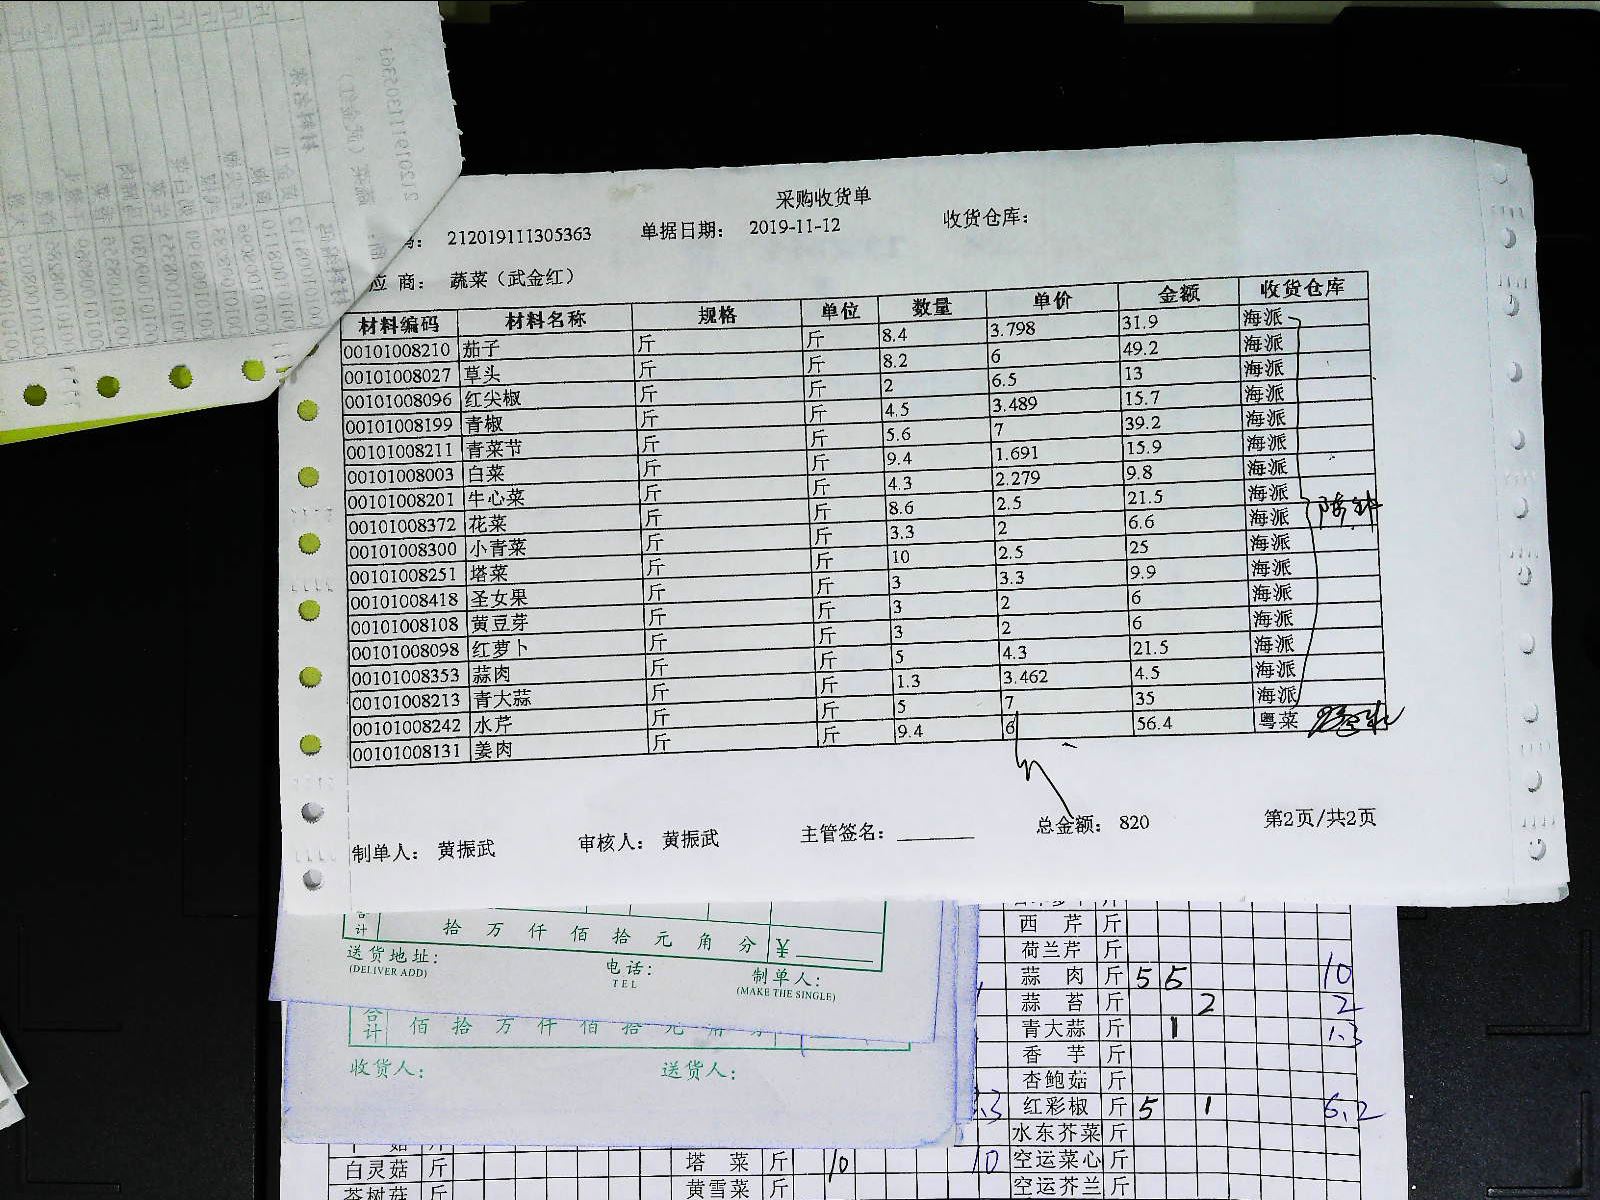 采购收货单
212019111305363 单据日期： 2019-11-12 收货仓库：
应 商： 蔬菜（武金红）
材料编码 材料名称 规格 单位 数量 单价 金额 收货仓库
00101008210 茄子 斤 斤 8.4 3.798 31.9 海派
00101008027 草头 斤 斤 8.2 6 49.2 海派
00101008096 红尖椒 斤 斤 2 6.5 13 海派
00101008199 青椒 斤 斤 4.5 3.489 15.7 海派
00101008211 青菜节 斤 斤 5.6 7 39.2 海派
00101008003 白菜 斤 斤 9.4 1.691 15.9 海派
00101008201 牛心菜 斤 斤 4.3 2.279 9.8 海派
00101008372 花菜 斤 斤 8.6 2.5 21.5 海派
00101008300 小青菜 斤 斤 3.3 2 6.6 海派
00101008251 塔菜 斤 斤 10 2.5 25 海派
00101008418 圣女果 斤 斤 3 3.3 9.9 海派
00101008108 黄豆芽 斤 斤 3 2 6 海派
00101008098 红萝卜 斤 斤 3 2 6 海派
00101008353 蒜肉 斤 斤 5 4.3 21.5 海派
00101008213 青大蒜 斤 斤 1.3 3.462 4.5 海派
00101008242 水芹 斤 斤 5 7 35 海派
00101008131 姜肉 斤 斤 9.4 6 56.4 粤菜
制单人： 黄振武 审核人： 黄振武 主管签名： 总金额： 820 第2页/共2页
合计 拾 万 仟 佰 拾 元 角 分 ￥
送货地址： 电话： 制单人：
(DELIVER ADD) TEL (MAKE THE SINGLE)
合计 佰 拾 万 仟 佰 拾 元 角
收货人： 送货人：
西 芹 斤
荷兰芹 斤
蒜 肉 斤 5 5 10
蒜 苔 斤 2 2
青大蒜 斤 1 1.3
香 芋 斤
杏鲍菇 斤
红彩椒 斤 5 1 6.2
水东芥菜 斤
白灵菇 斤 塔 菜 斤 10 10 空运菜心 斤
茶树菇 斤 黄雪菜 斤 空运芥兰 斤